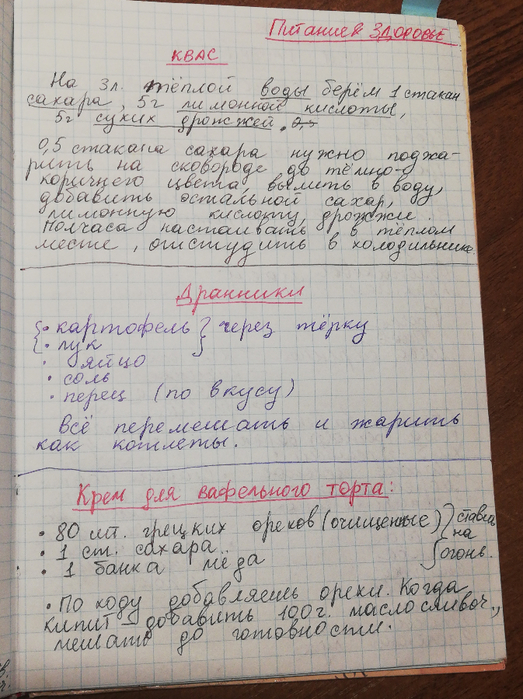 Питание и Здоровье
КВАС
На 3л. тёплой воды берём 1 стакан
сахара, 5г лимонной кислоты,
5г сухих дрожжей.
0,5 стакана сахара нужно поджа-
рить на сковороде до тёмно-
коричнего цвета, вылить в воду,
добавить остальной сахар,
лимонную кислоту, дрожжи.
Полчаса настаивать в тёплом
месте, отстудить в холодильнике.
Дранники
{ • картофель } через тёрку
{ • лук }
• яйцо
• соль
• перец (по вкусу)
всё перемешать и жарить
как котлеты.
Крем для вафельного торта:
• 80 шт. грецких орехов (очищенные) } ставлю
• 1 ст. сахара } на
• 1 банка мёда } огонь.
• По ходу добавляешь орехи. Когда
кипит добавить 100г. масло сливоч.,
мешать до готовности.